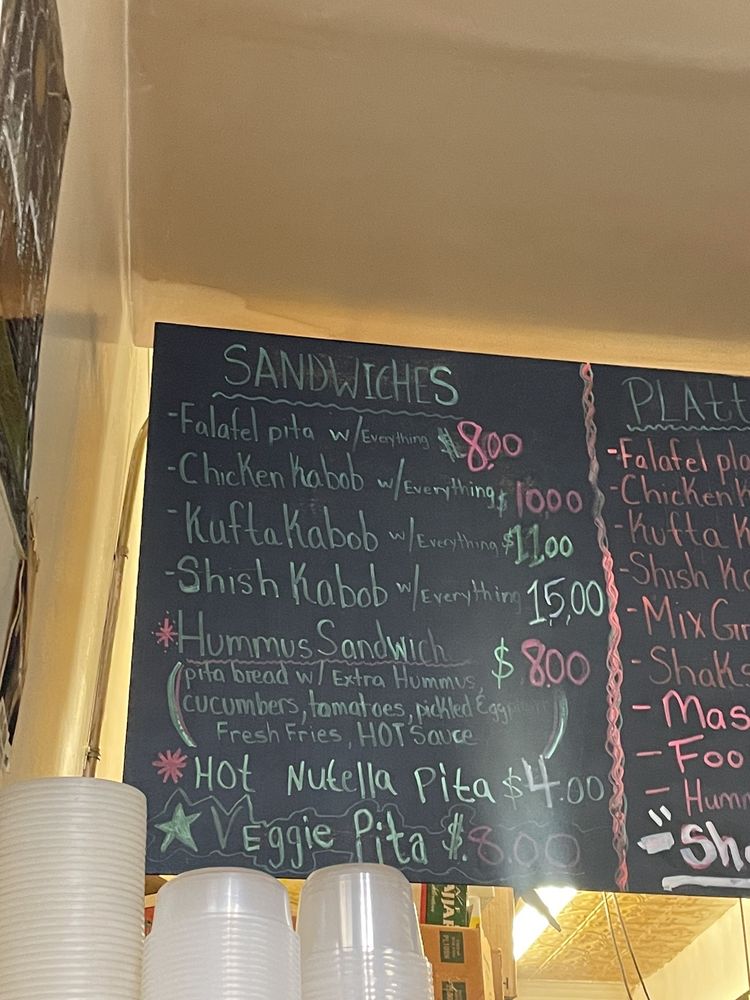 SANDWICHES
-Falafel pita w/Everything $8.00
-Chicken Kabob w/Everything $10.00
-Kufta Kabob w/Everything $11.00
-Shish Kabob w/Everything 15.00
*Hummus Sandwich $8.00
(pita bread w/ Extra Hummus,
cucumbers, tomatoes, pickled
Fresh Fries, HOT Sauce)
*Hot Nutella Pita $4.00
☆Veggie Pita $.8.00
PLAtt
-Falafel pla
-Chicken K
-Kufta K
-Shish Ka
-Mix Gr
-Shaks
-Mas
-Foo
-Humm
-"Sh